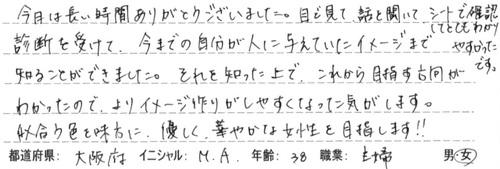 今日は長い時間ありがとうございました。目で見て、話を聞いて、シートで確認
してとてもわかり
やすかった
です。
診断を受けて、今までの自分が人に与えていたイメージまで
知ることができました。それを知った上で、これから目指す方向が
わかったので、よりイメージ作りがしやすくなった気がします。
似合う色を味方に、優しく、華やかな女性を目指します!!
都道府県: 大阪府 イニシャル: M.A. 年齢: 38 職業: 主婦 男・女